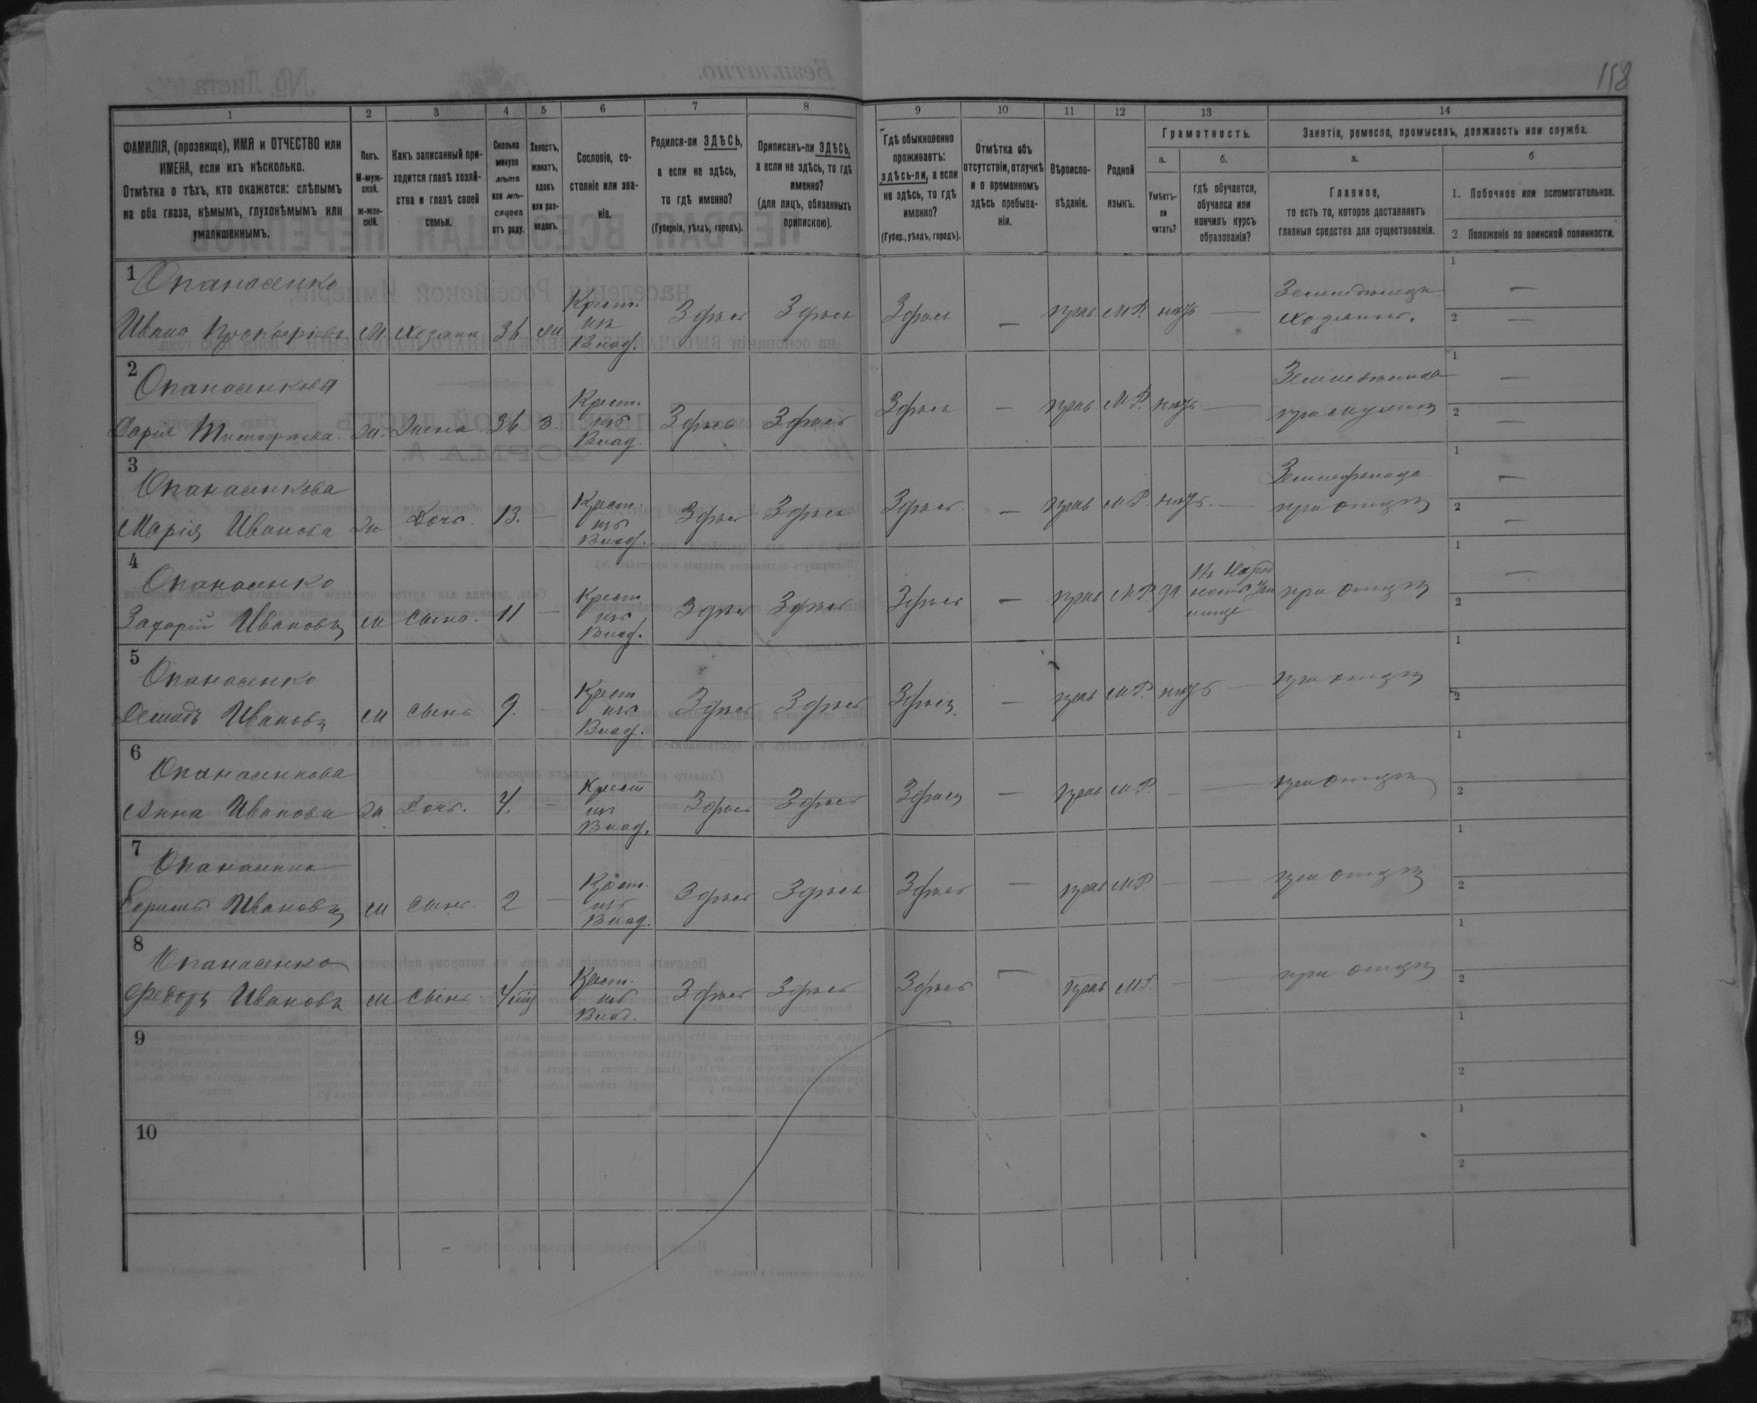 158
1 2 3 4 5 6 7 8 9 10 11 12 13 14
ФАМИЛІЯ, (прозвище), ИМЯ и ОТЧЕСТВО или
ИМЕНА, если ихъ нѣсколько.
Отмѣтка о тѣхъ, кто окажется: слѣпымъ
на оба глаза, нѣмымъ, глухонѣмымъ или
умалишеннымъ.
Полъ.
М-муж-
ской.
ж-жен-
скій.
Какъ записанный при-
ходится главѣ хозяй-
ства и главѣ своей
семьи.
Сколько
минуло
лѣтъ
или мѣ-
сяцевъ
отъ роду.
Холостъ,
женатъ,
вдовъ
или раз-
веденъ.
Сословіе, со-
стояніе или зва-
ніе.
Родился-ли ЗДѢСЬ,
а если не здѣсь,
то гдѣ именно?
(Губернія, уѣздъ, городъ).
Приписанъ-ли ЗДѢСЬ,
а если не здѣсь, то гдѣ
именно?
(для лицъ, обязанныхъ
припискою).
Гдѣ обыкновенно
проживаетъ:
здѣсь-ли, а если
не здѣсь, то гдѣ
именно?
(Губер., уѣздъ, городъ).
Отмѣтка объ
отсутствіи, отлучкѣ
и о временномъ
здѣсь пребыва-
ніи.
Вѣроиспо-
вѣданіе.
Родной
языкъ.
Грамотность.
а. б.
Умѣетъ-
ли
читать?
гдѣ обучается,
обучался или
кончилъ курсъ
образованія?
Занятіе, ремесло, промыселъ, должность или служба.
а. б
Главное,
то есть то, которое доставляетъ
главныя средства для существованія.
1. Побочное или вспомогательное.
2 Положеніе по воинской повинности.
1 Опанасенко
Иванъ м. хозяинъ 36 ж Крест. изъ Влад. Здѣсь Здѣсь Здѣсь — прав М.Р. нѣтъ — хозяинъ. 1 — 2 —
2 Опанасенкова
Дарія ж. жена 36 з Крест. изъ Влад. Здѣсь Здѣсь Здѣсь — прав М.Р. нѣтъ — при мужѣ 1 — 2 —
3 Опанасенкова
Марія Иванова ж Дочь. 13. — Крест. изъ Влад. Здѣсь Здѣсь Здѣсь — прав М.Р. нѣтъ — при отцѣ 1 — 2 —
4 Опанасенко
Захарій Ивановъ м сынъ. 11 — Крест изъ Влад. Здѣсь Здѣсь Здѣсь — прав М.Р. да при отцѣ 1 — 2
5 Опанасенко
Ивановъ м сынъ 9. — Крест изъ Влад. Здѣсь Здѣсь Здѣсь — прав М.Р. нѣтъ — при отцѣ 1 2
6 Опанасенкова
Анна Иванова ж Дочь. 4. — Крест изъ Влад. Здѣсь Здѣсь Здѣсь — прав М.Р. — — при отцѣ 1 2
7 Опанасенко
Ивановъ м сынъ 2 — Крест. изъ Влад. Здѣсь Здѣсь Здѣсь — прав М.Р — — при отцѣ 1 2
8 Опанасенко
Федоръ Ивановъ м сынъ Крест. изъ Влад. Здѣсь Здѣсь Здѣсь — прав М.Р. — — при отцѣ 1 2
9 1 2
10 1 2